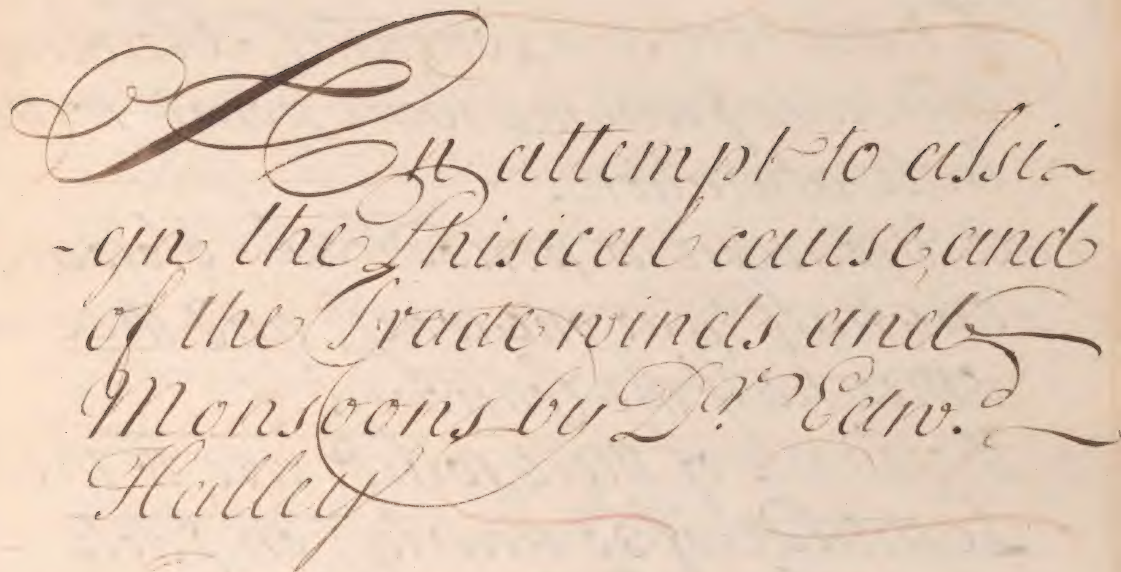 An attempt to assi-
-gn the Phisical cause, and
of the Trade winds and
Monsoons by Dr. Edw.d
Halley